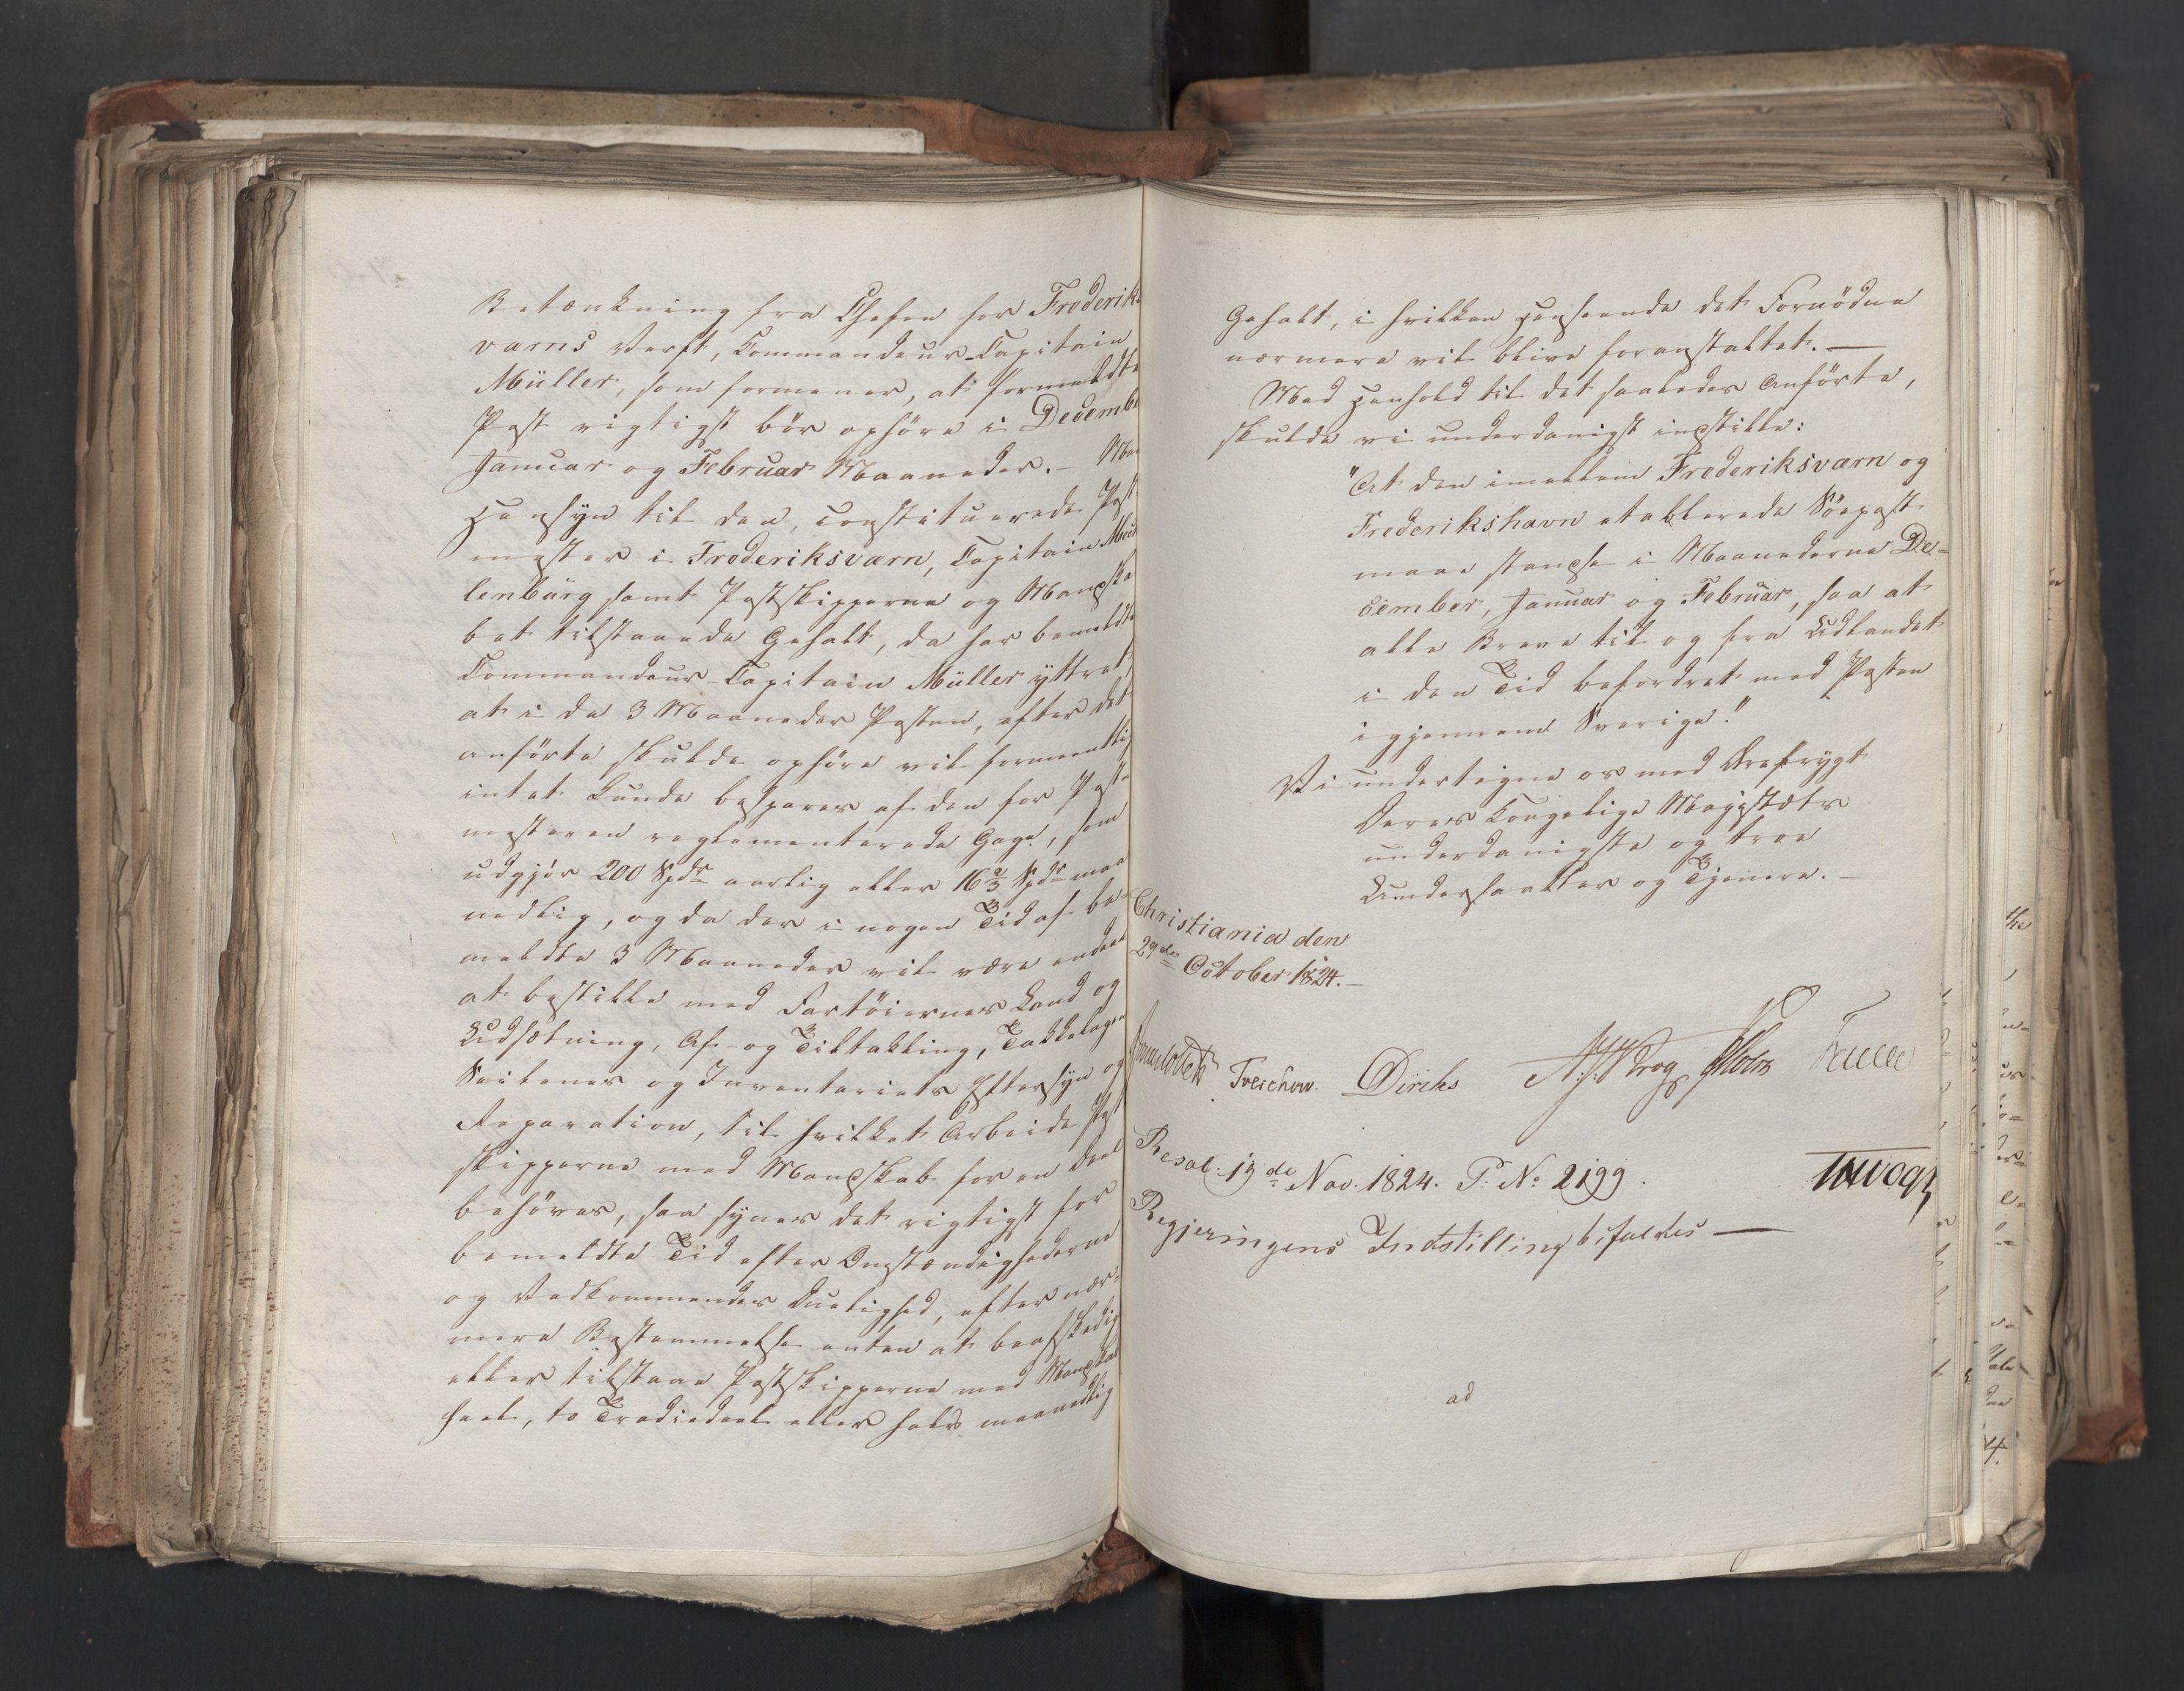 Betænkning fra Chefen for Frederiks
værns Værft, Commandeur-Capitain
Müller, som formener, at formeldte
Post rigtigst bör ophöre i Decembe
Januar og Februar Maaneder. – Me
Hensyn til den, constituerede Post
mester i Frederiksværn, Capitain Mech
lenburg samt Postskipperne og Mandska
bet tilstaaede Gehalt, da har bemeldte
Commandeur-Capitain Müller yttret,
at i de 3 Maaneder Posten, efter det
anförte skulde ophöre vil formeentlig
intet kunde bespares af den for Post-
mesteren reglementerede Gage, som
udgjör 200 Spdr aarlig eller 16 2/3 Spdr maa
nedlig, og da der i nogen Tid af be-
meldte 3 Maaneder vil være endeel
at bestille med Fartöiernes Land og
Udsætning, Af- og Tiltakling, Takkelagen
Seilenes og Inventariets Eftersyn og
Reparation, til hvilket Arbeide Post
skipperne med Mandskab for en Deel
behöves, saa synes det rigtigst for
bemeldte Tid efter Omstændighederne
og Vedkommendes Duelighed, efter nær-
mere Bestemmelse enten at beafskedig
eller tilstaae Postskipperne med Mandskab
heel, to Trediedeel eller halv maanedlig
Gehalt, i hvilken Henseende det Fornödne
nærmere vil blive foranstaltet. —
Med Henhold til det saaledes Anförte,
skulde vi underdanigst indstille:
"At den imellem Frederiksværn og
Frederikshavn etablerede Söepost
maae standse i Maanederne De-
cember, Januar og Februar, saa at
alle Breve til og fra Udlandet
i den Tid befordret med Posten
igjennem Sverige."
Vi undertegne os med Ærefrygt
Deres Kongelige Majestæts
underdanigste og troe
Undersaatter og Tjenere. —
Christiania den
29de October 1824. —
Treschow. Diriks Krog Holst
Resol. 13de Nov. 1824. P: No 2199.
Regjeringens Indstilling bifaldes —
ad